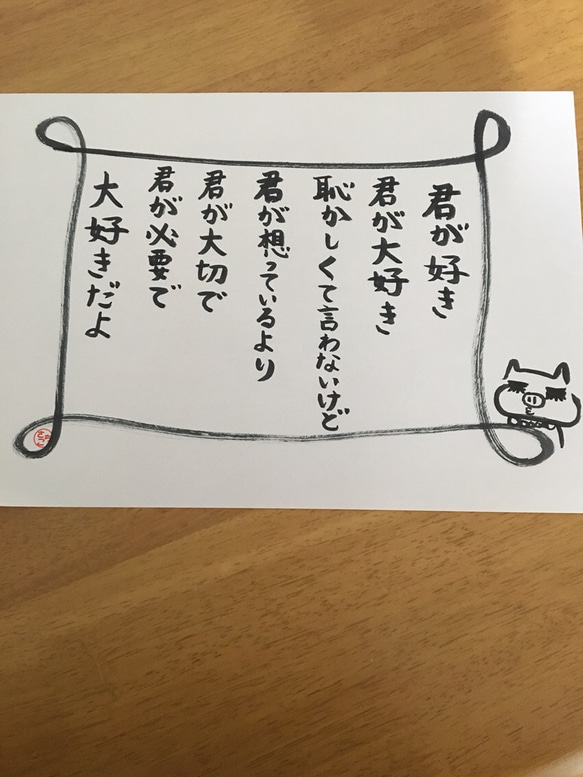 君が好き
君が大好き
恥かしくて言わないけど
君が想っているより
君が大切で
君が必要で
大好きだよ